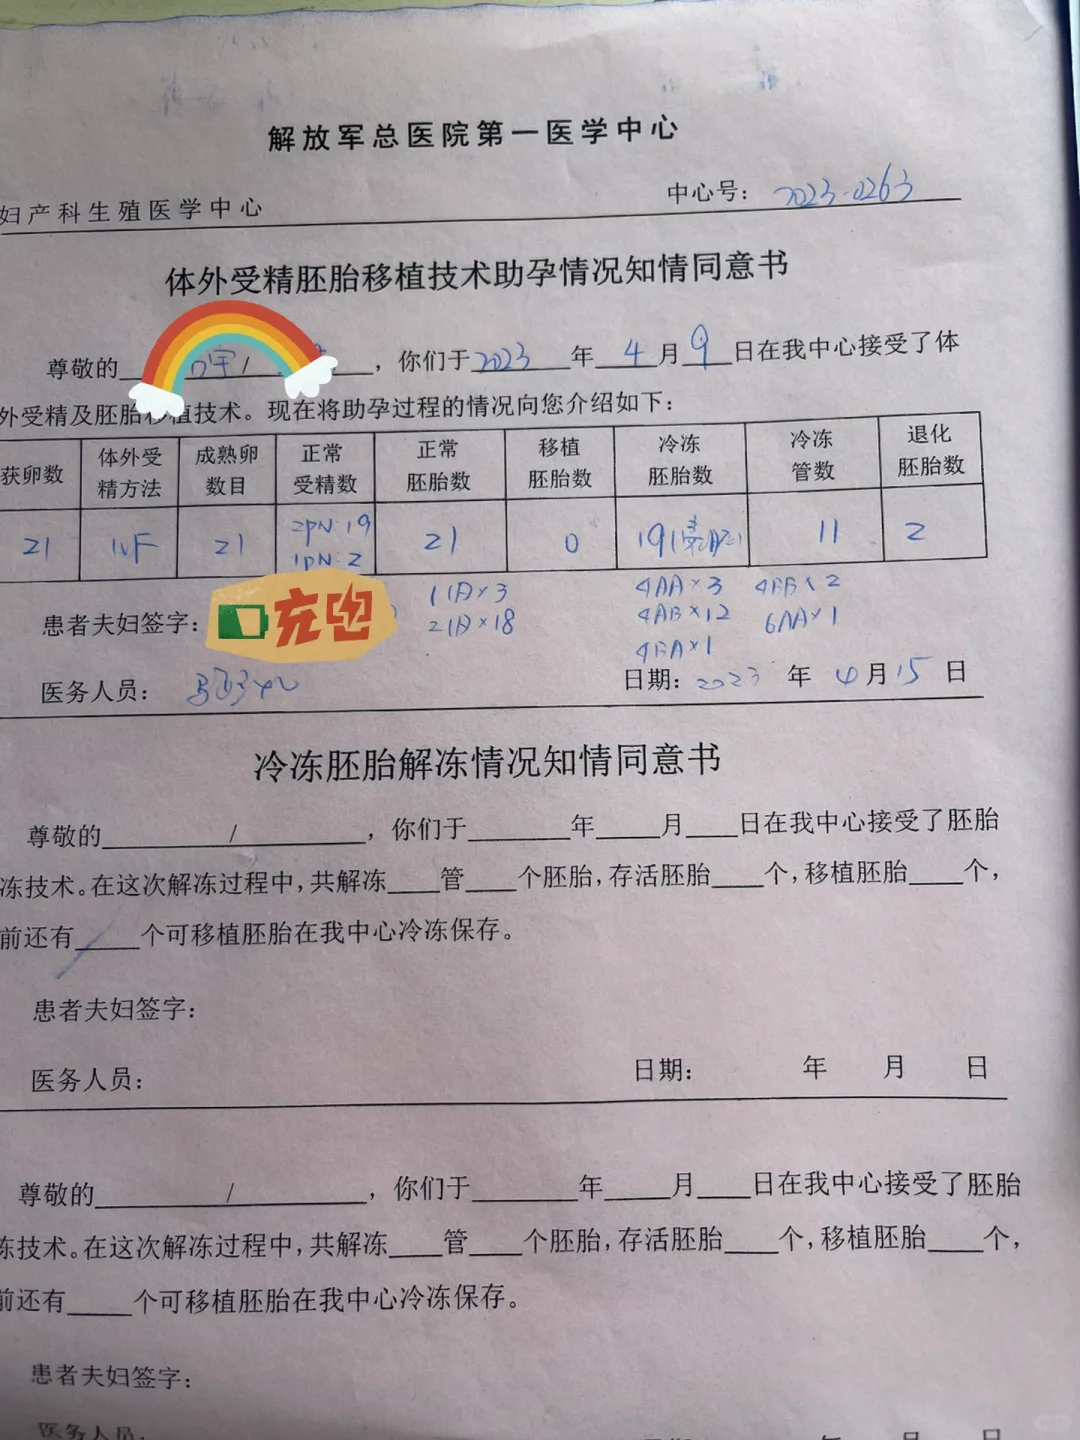 解放军总医院第一医学中心
妇产科生殖医学中心 中心号: 2023-0263
体外受精胚胎移植技术助孕情况知情同意书
尊敬的 宇/ ，你们于2023年4月9日在我中心接受了体
外受精及胚胎移植技术。现在将助孕过程的情况向您介绍如下：
获卵数 体外受精方法 成熟卵数目 正常受精数 正常胚胎数 移植胚胎数 冷冻胚胎数 冷冻管数 退化胚胎数
21 IVF 21 2PN:19 1PN:2 21 0 19(囊胚) 11 2
1级×3 4AA×3 4BB×2
2级×18 4AB×12 6AA×1
4BA×1
患者夫妇签字： 充电
医务人员： 日期：2023年4月15日
冷冻胚胎解冻情况知情同意书
尊敬的 / ，你们于 年 月 日在我中心接受了胚胎
冻技术。在这次解冻过程中，共解冻 管 个胚胎，存活胚胎 个，移植胚胎 个，
前还有 个可移植胚胎在我中心冷冻保存。
患者夫妇签字：
医务人员： 日期： 年 月 日
尊敬的 / ，你们于 年 月 日在我中心接受了胚胎
冻技术。在这次解冻过程中，共解冻 管 个胚胎，存活胚胎 个，移植胚胎 个，
前还有 个可移植胚胎在我中心冷冻保存。
患者夫妇签字：
医务人员： 年 月 日